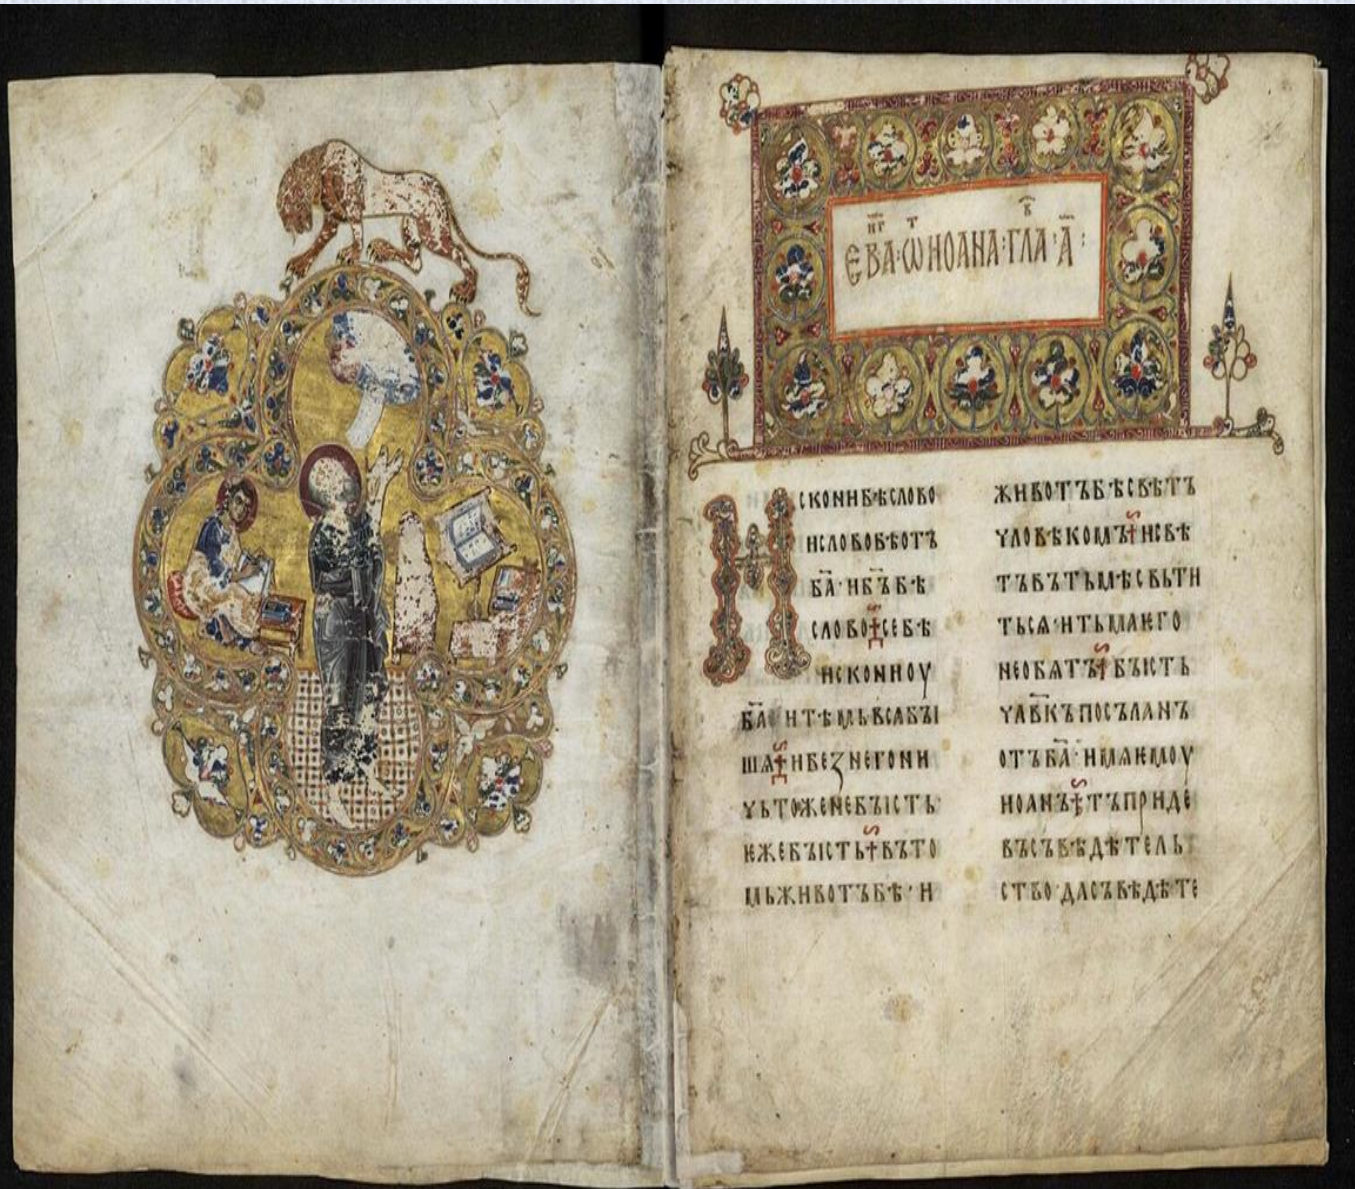 ЕВА·ѾИОАНА·ГЛА·А҃:
ИСКОНИБѢСЛОВО
ИСЛОВОБѢОТЪ
БА҃·ИБЪ҃БѢ
СЛОВО·СЕБѢ
ИСКОНИОУ
БА҃·ИТѢМЬВСꙖБꙐ
ШѦ·ИБЕЗНЕГОНИ
ЧЬТОЖЕНЕБꙐСТЬ·
ѤЖЕБꙐСТЬ·ВЪТО
МЬЖИВОТЪБѢ·И
ЖИВОТЪБѢСВѢТЪ
ЧЛОВѢКОМЪ·ИСВѢ
ТЪВЪТЬМѢСВЬТИ
ТЬСѦ·ИТЬМАѤГО
НЕОБѦТЪ·БꙐСТЬ
ЧЛ҃ВКЪПОСЪЛАНЪ
ОТЪБА҃·ИМѦѤМОУ
ИОАНЪ·ТЪПРИДЕ
ВЪСЪВѢДѢТЕЛЬ
СТВО·ДАСЪВѢДѢТЕ